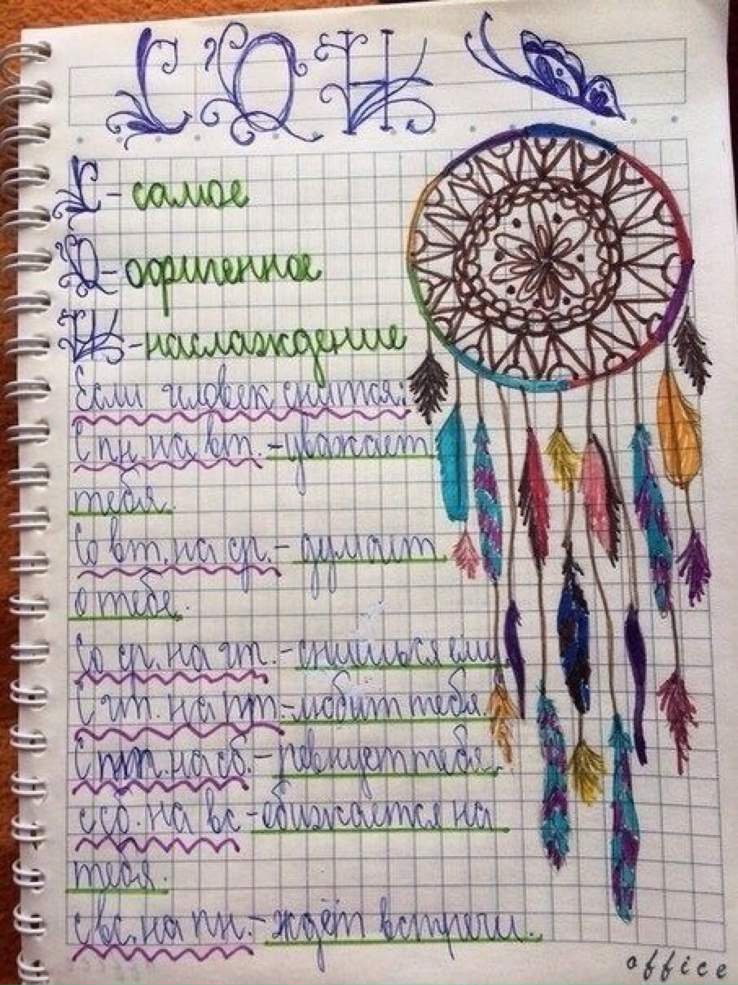 СОН
С - самое
О - офигенное
Н - наслаждение
Если человек снится:
С пн. на вт. - уважает
тебя.
Со вт. на ср. - думает
о тебе.
Со ср. на чт. - снишься ему
С чт. на пт. - любит тебя.
С пт. на сб. - ревнует тебя.
с сб. на вс - обижается на
тебя.
с вс. на пн. - ждёт встречи.
office